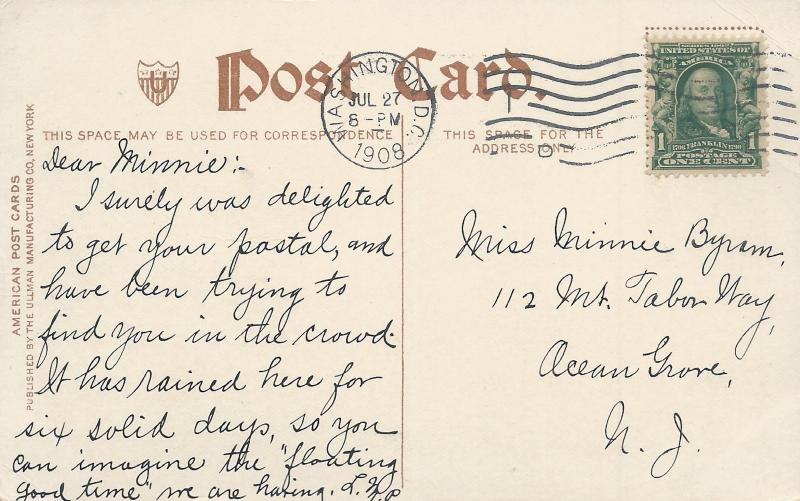 Post Card.
WASHINGTON, D.C.
JUL 27
8-PM
1908
SERIES 1902
UNITED STATES OF
AMERICA
1 1706 FRANKLIN 1790 1
POSTAGE
ONE CENT
THIS SPACE MAY BE USED FOR CORRESPONDENCE
THIS SPACE FOR THE
ADDRESS ONLY
AMERICAN POST CARDS
PUBLISHED BY THE ULLMAN MANUFACTURING CO., NEW YORK
Dear Minnie:-
I surely was delighted
to get your postal, and
have been trying to
find you in the crowd.
It has rained here for
six solid days, so you
can imagine the "floating
good time" we are having.
Miss Minnie Byram,
112 Mt. Tabor Way,
Ocean Grove,
N. J.